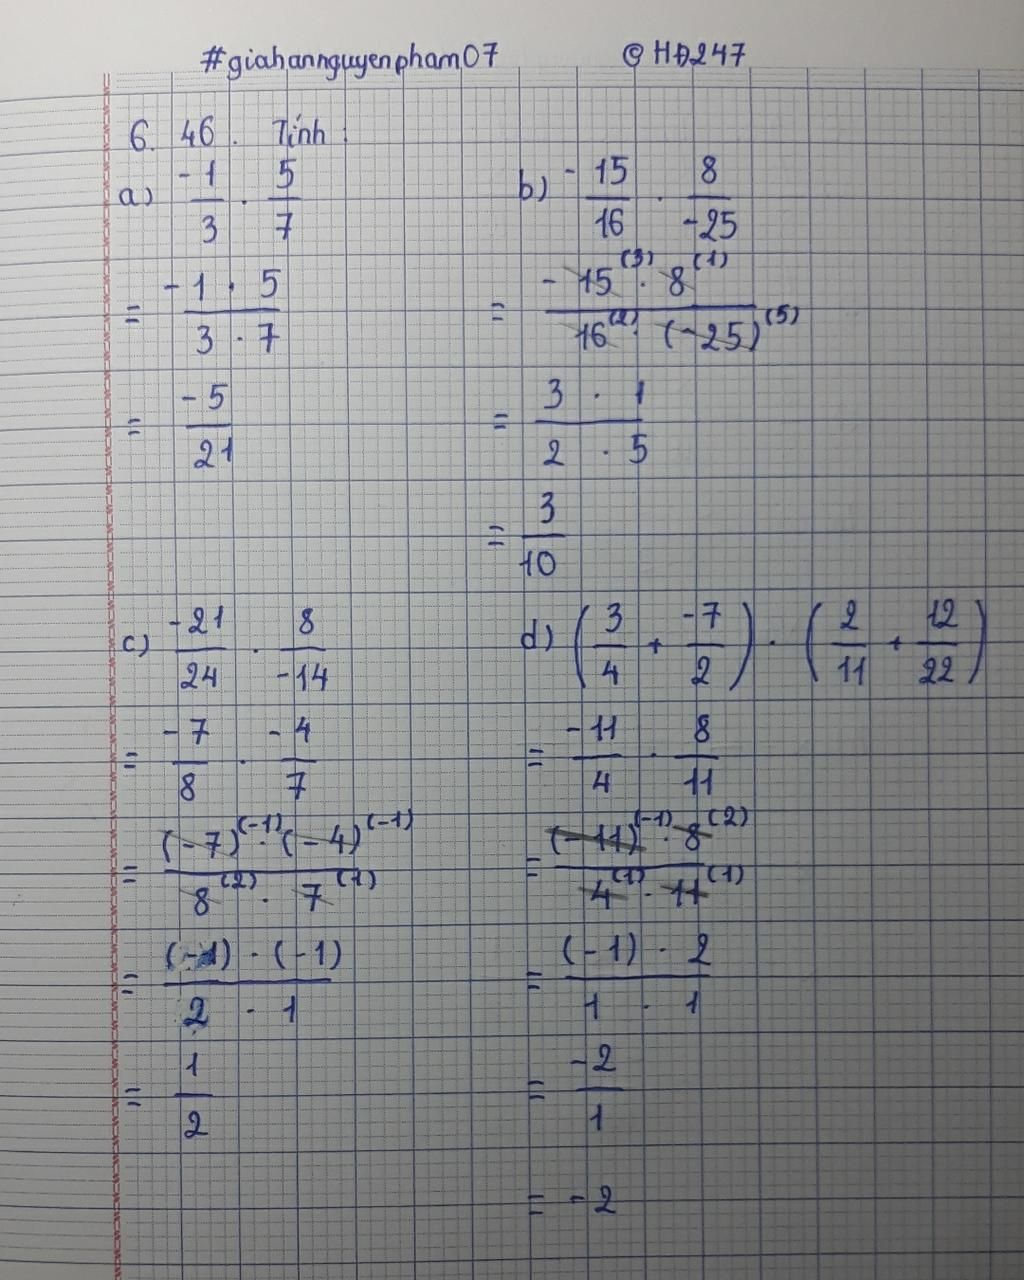 #giahannguyenpham07 @HĐ247
6. 46. Tính:
a) -1/3 . 5/7
= -1 . 5 / 3 . 7
= -5/21
b) -15/16 . 8/-25
= -15(3) . 8(1) / 16(2) . (-25)(5)
= 3 . 1 / 2 . 5
= 3/10
c) -21/24 . 8/-14
= -7/8 . -4/7
= (-7)(-1) . (-4)(-1) / 8(2) . 7(1)
= (-1) . (-1) / 2 . 1
= 1/2
d) (3/4 + -7/2) . (2/11 + 12/22)
= -11/4 . 8/11
= (-11)(-1) . 8(2) / 4(1) . 11(1)
= (-1) . 2 / 1 . 1
= -2/1
= -2